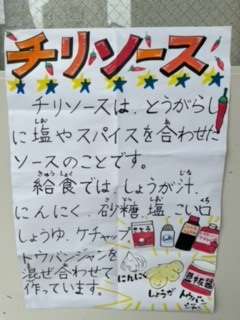 チリソース
チリソースは、とうがらし
に塩やスパイスを合わせた
ソースのことです。
給食では、しょうが汁、
にんにく、砂糖、塩、こい口
しょうゆ、ケチャップ
トウバンジャンを
混ぜ合わせて
作っています。
にんにく
しょうが
トウバンジャン